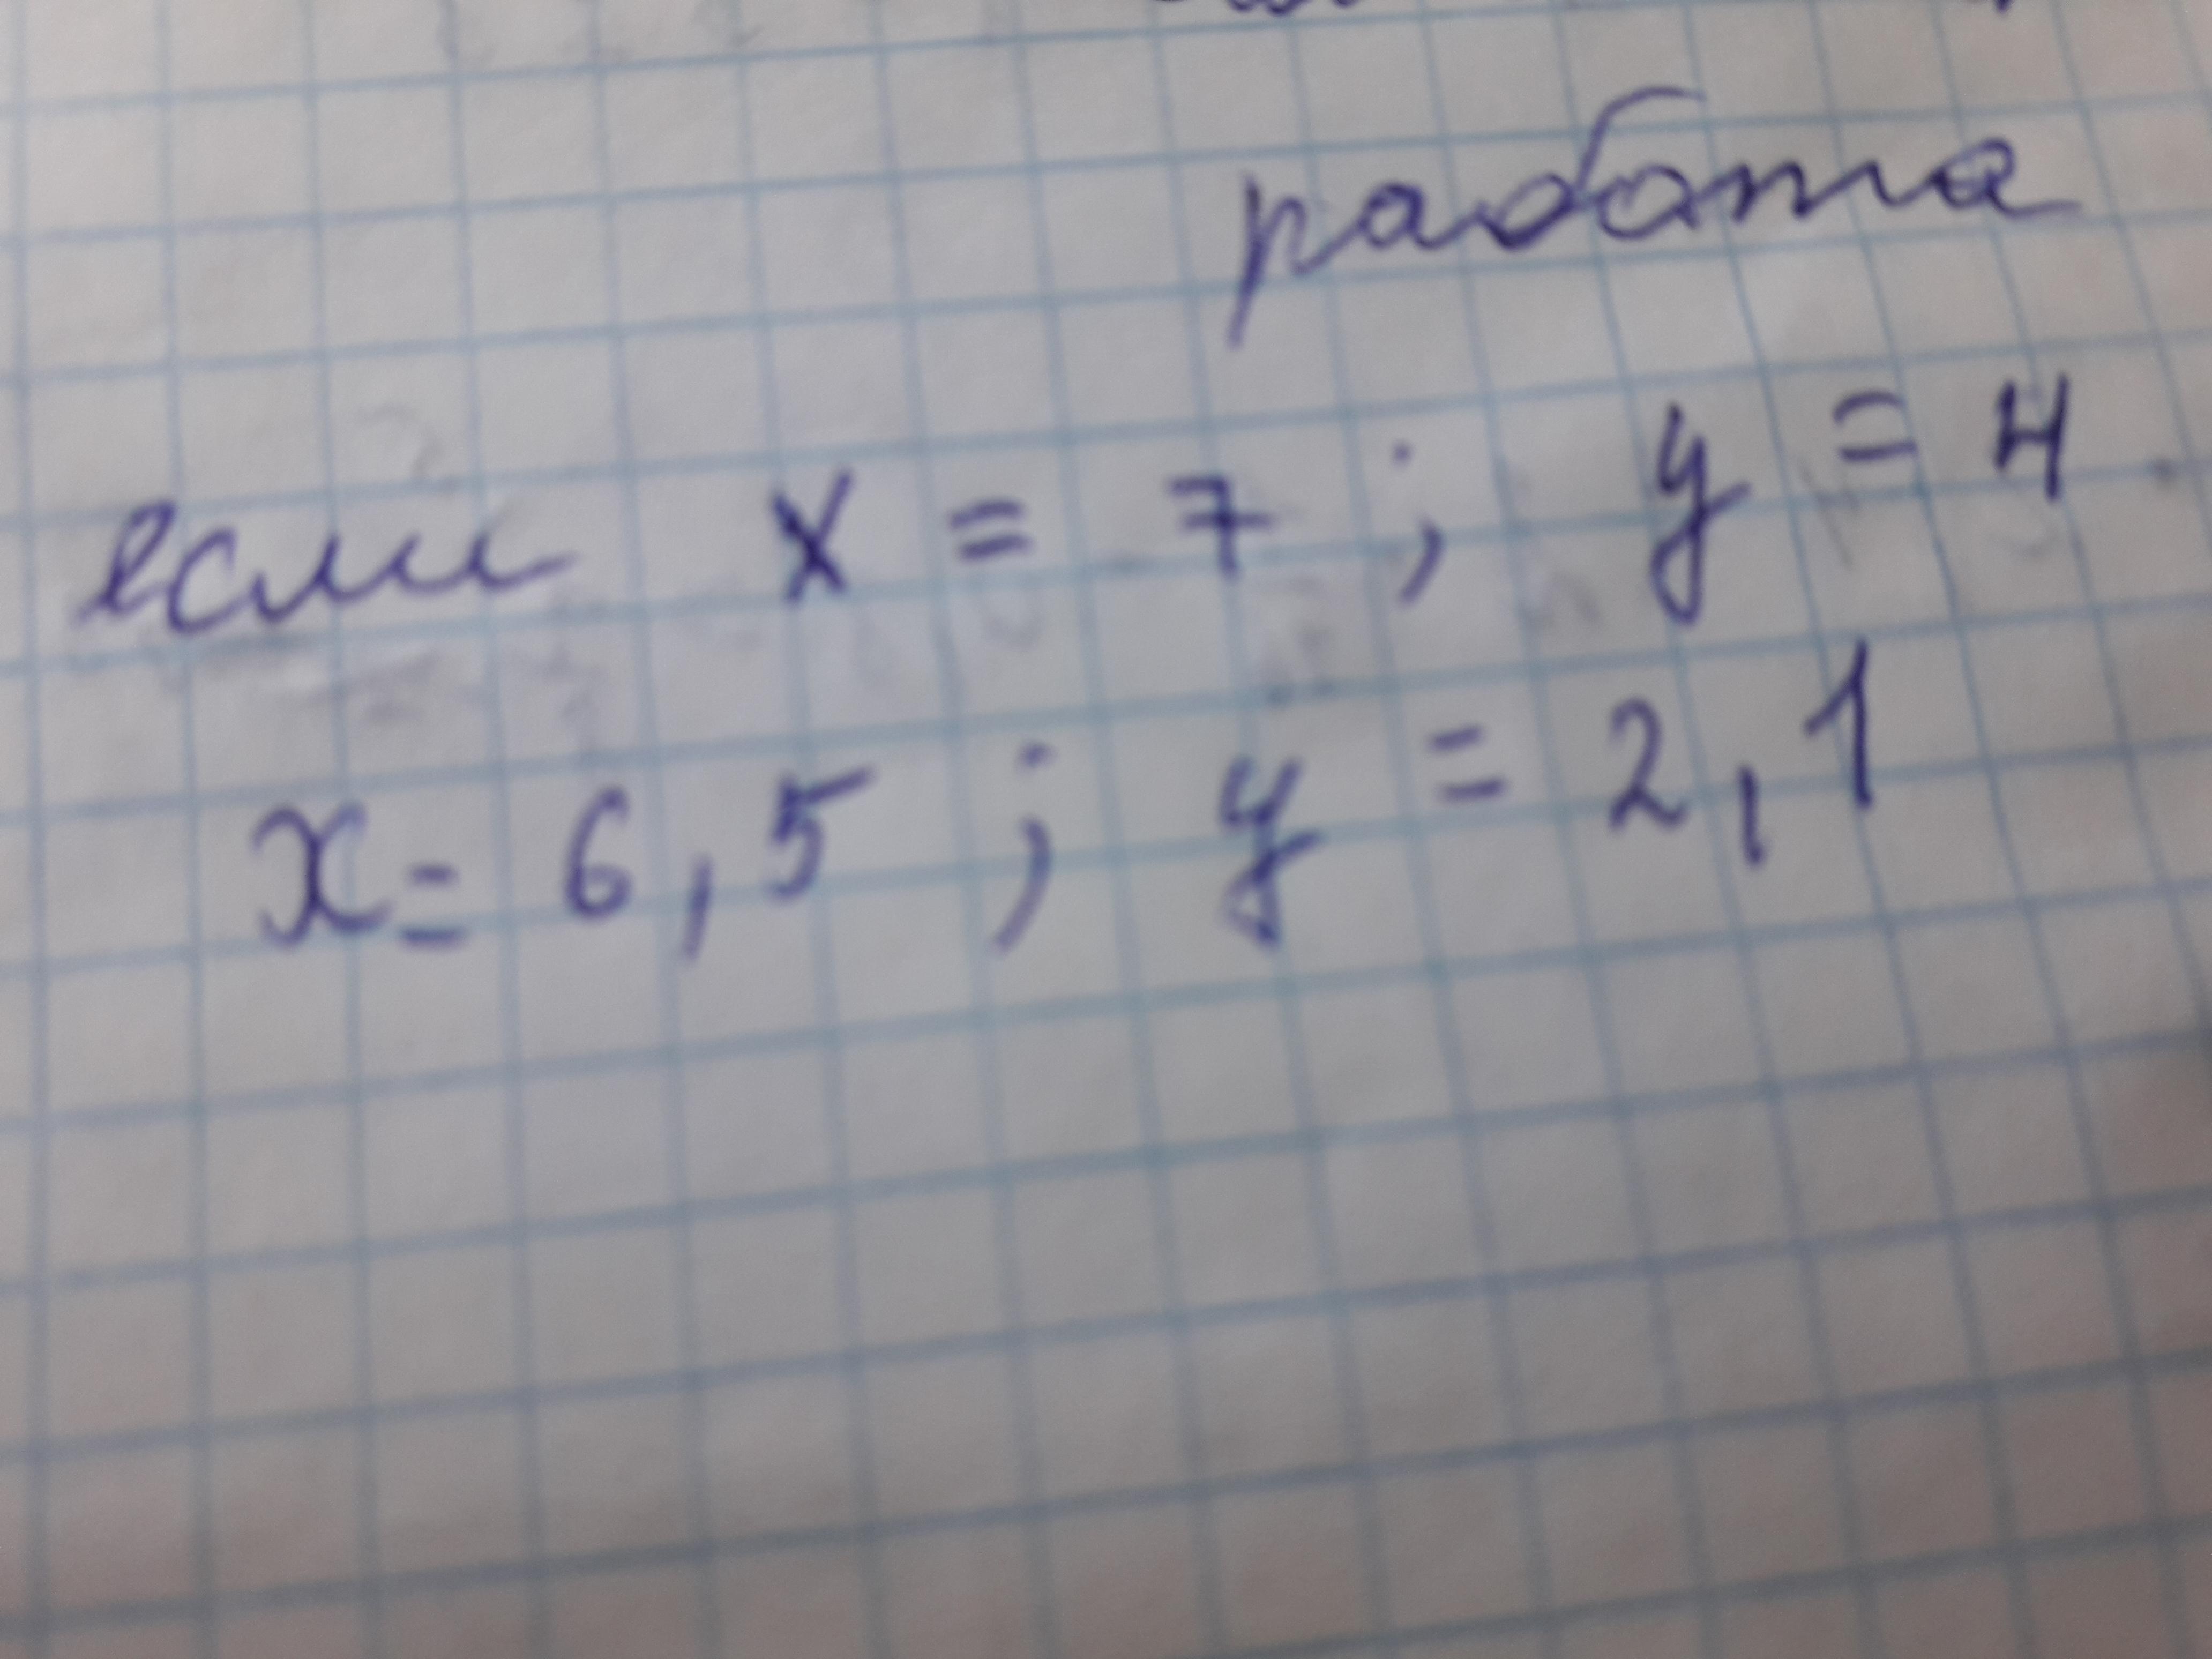 работа
если x = 7 ; y = 4
x = 6,5 ; y = 2,1